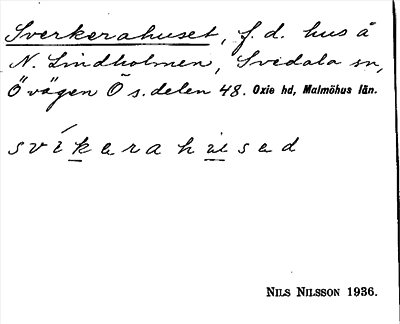 Sverkerahuset, f. d. hus å
N. Lindholmen, Svedala sn,
Ö vägen Ö s. delen 48. Oxie hd, Malmöhus län.
svíkerahused
NILS NILSSON 1936.